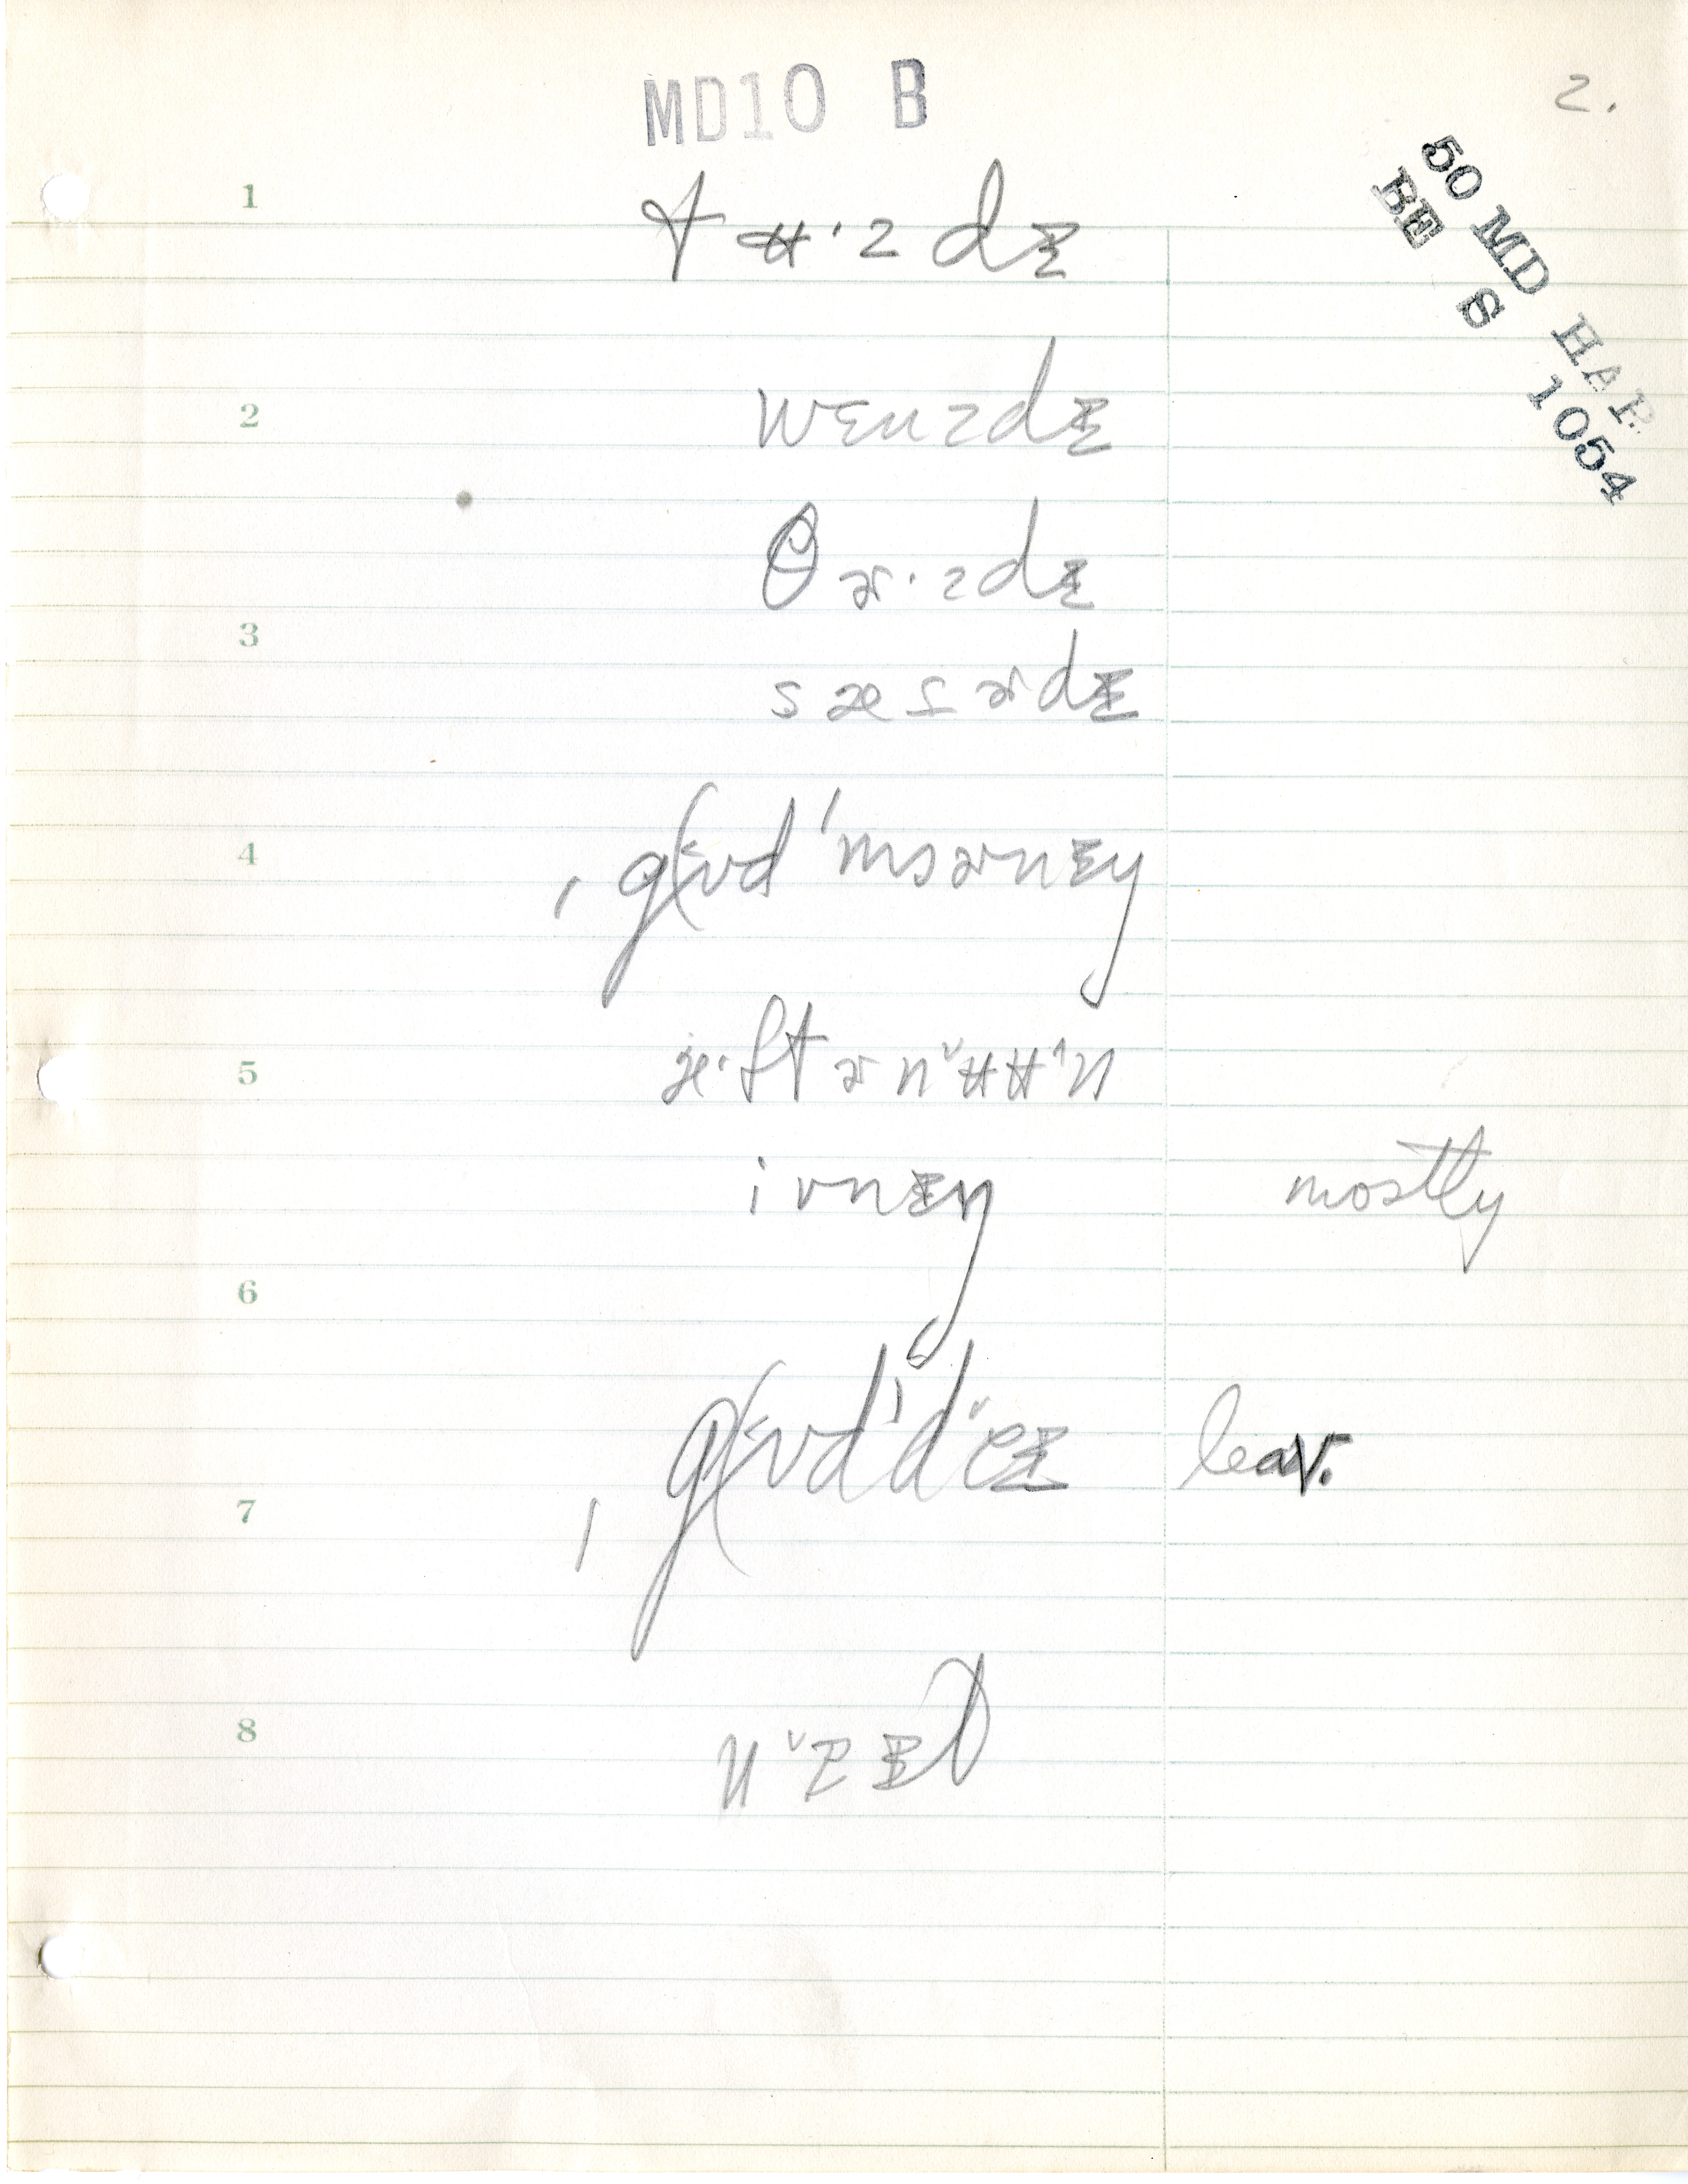 MD10 B
2.
50 MD HAR
BE S 1054
1
tʉ·zdᵻ
2
wɛnzdᵻ
θɚ·zdᵻ
3
sædɚdᵻ
4
ˌgʊd ˈmɔɚnᵻŋ
5
æ·ftɚnᵛʉʉ^n
ivnᵻŋ mostly
6
ˌgʊdˈdᵛeᵻ leav.
7
8